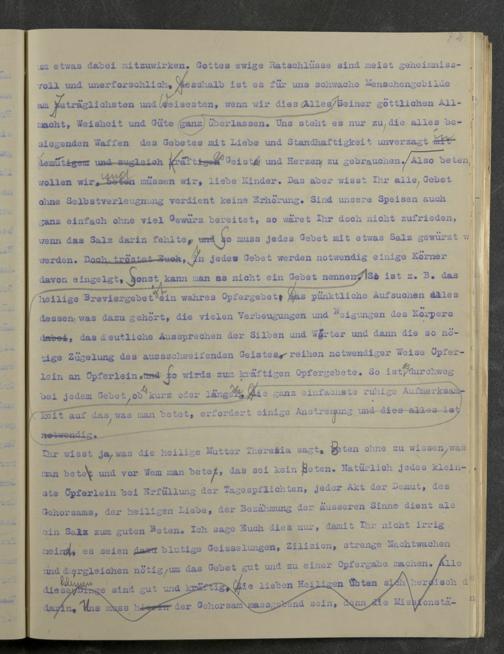 um etwas dabei mitzuwirken. Gottes ewige Ratschlüsse sind meist geheimniss-
voll und unerforschlich. Desshalb ist es für uns schwache Menschengebilde
am Zuträglichsten und Weisesten, wenn wir dies Alles Seiner göttlichen All-
macht, Weisheit und Güte ganz überlassen. Uns steht es nur zu, die alles be-
siegenden Waffen des Gebetes mit Liebe und Standhaftigkeit unverzagt mit
demütigem und zugleich kräftigem Geiste und Herzen zu gebrauchen. Also beten
wollen wir, beten und müssen wir, liebe Kinder. Das aber wisst Ihr alle, Gebet
ohne Selbstverleugnung verdient keine Erhörung. Sind unsere Speisen auch
ganz einfach ohne viel Gewürz bereitet, so wäret Ihr doch nicht zufrieden,
wenn das Salz darin fehlte, und So muss jedes Gebet mit etwas Salz gewürzt w
werden. Doch tröstet Euch, In jedes Gebet werden notwendig einige Körner
davon eingelgt, Sonst kann man es nicht ein Gebet nennen. So ist z. B. das
heilige Breviergebet ist ein wahres Opfergebet. Das pünktliche Aufsuchen alles
dessen, was dazu gehört, die vielen Verbeugungen und Neigungen des Körpers
dabei, das deutliche Aussprechen der Silben und Wörter und dann die so nö-
tige Zügelung des ausschweifenden Geistes, reihen notwendiger Weise Opfer-
lein an Opferlein. und So wirds zum kräftigen Opfergebete. So ist durchweg
bei jedem Gebet, ob kurz oder länger. Die ganz einfachste ruhige Aufmerksam-
keit auf das, was man betet, erfordert einige Anstrengung und dies alles ist
notwendig.
Ihr wisst ja, was die heilige Mutter Theresia sagt. Beten ohne zu wissen, was
man betet und vor Wem man betet, das sei kein Beten. Natürlich jedes klein-
ste Opferlein bei Erfüllung der Tagespflichten, jeder Akt der Demut, des
Gehorsams, der heiligen Liebe, der Bezähmung der äusseren Sinne dient als
ein Salz zum guten Beten. Ich sage Euch dies nur, damit Ihr nicht irrig
meint, es seien dazu blutige Geisselungen, Zilizien, strenge Nachtwachen
und dergleichen nötig, um das Gebet gut und zu einer Opfergabe machen. Alle
diese Dinge sind gut und kräftig. Die lieben Heiligen übten sich heroisch d
darin. Uns muss hierin der Gehorsam massgebend sein, denn die Missionstä-